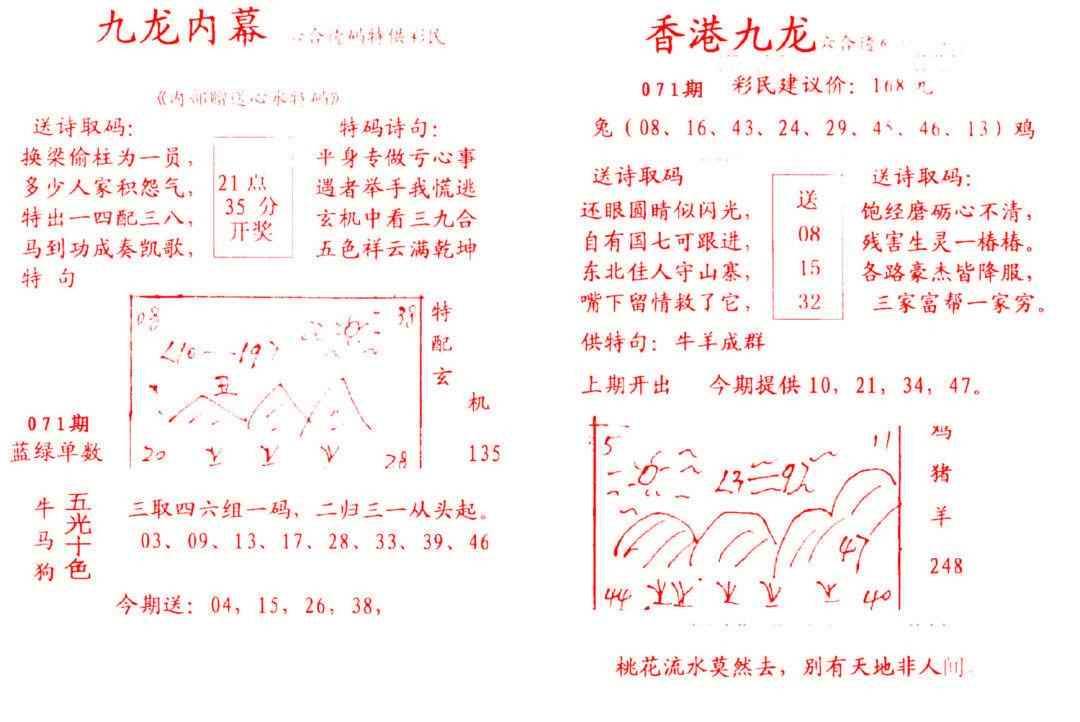 九龙内幕
合 码特供彩民
《内部赠送心水特码》
送诗取码：
换梁偷柱为一员，
多少人家积怨气，
特出一四配三八，
马到功成奏凯歌，
特 句
21 点
35 分
开奖
特码诗句：
半身专做亏心事
遇者举手我慌逃
玄机中看三九合
五色祥云满乾坤
08
38
丑
20
28
特
配
玄
机
135
071期
蓝绿单数
牛
马
狗
五光十色
三取四六组一码，二归三一从头起。
03、09、13、17、28、33、39、46
今期送：04，15，26，38，
香港九龙
六合
071期 彩民建议价：168 元
兔（08、16、43、24、29、45、46、13）鸡
送诗取码
还眼圆晴似闪光，
自有国七可跟进，
东北佳人守山寨，
嘴下留情救了它，
送
08
15
32
送诗取码：
饱经磨砺心不清，
残害生灵一樁樁。
各路豪杰皆降服，
三家富帮一家穷。
供特句：牛羊成群
上期开出 今期提供 10，21，34，47。
5
11
47
44
40
鸡
猪
羊
248
桃花流水莫然去，别有天地非人间.